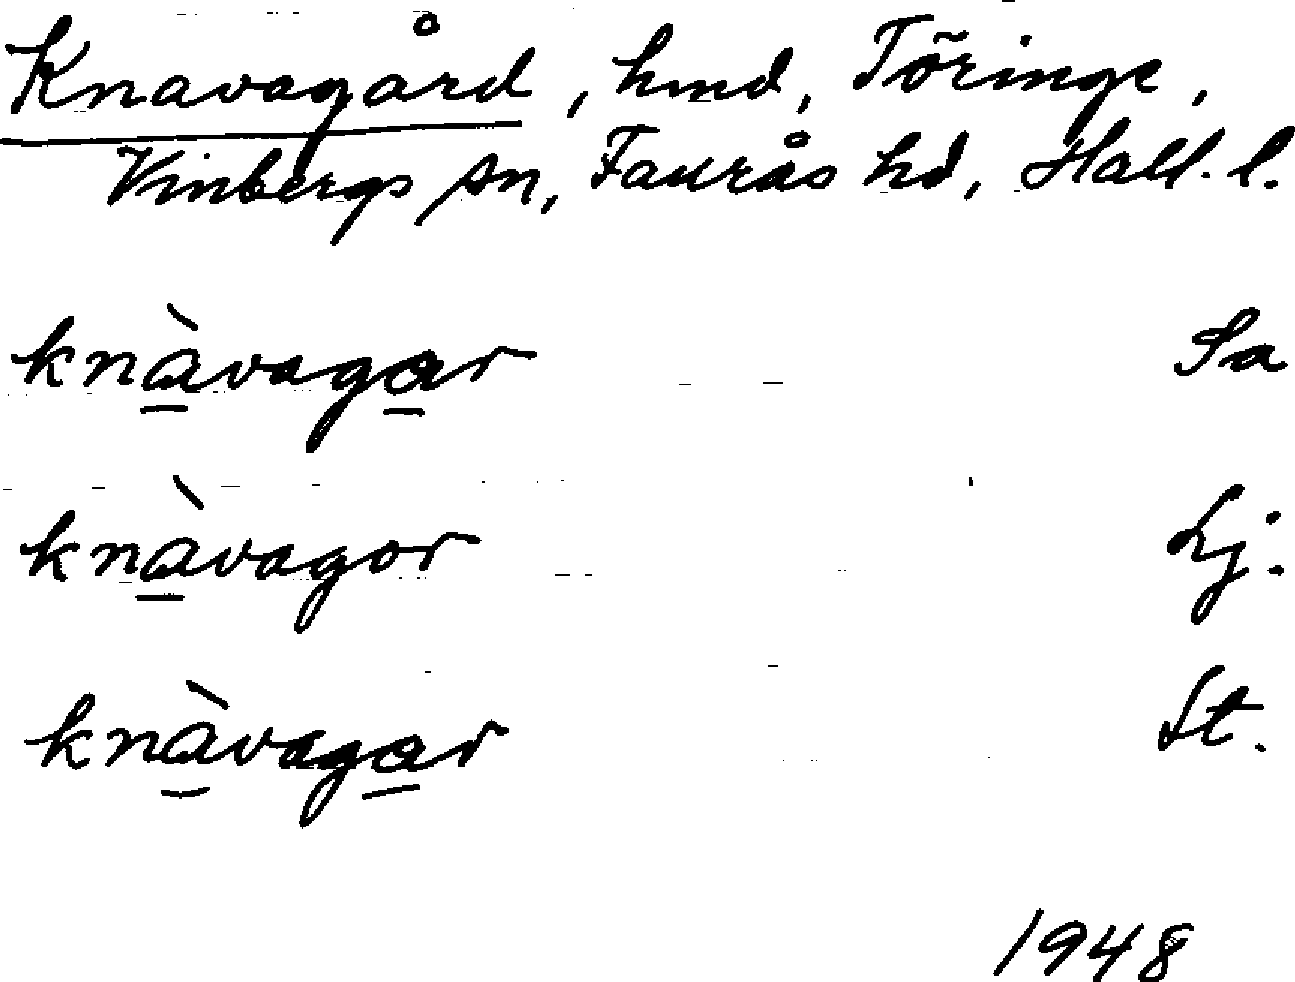 Knavagård, hmd, Töringe,
Vinbergs sn, Faurås hd, Hall. l.
knàvagar Sa
knàvagor Lj.
knàvagar St.
1948